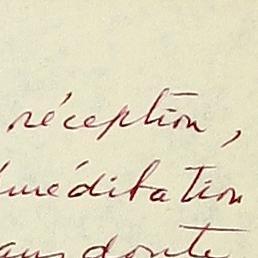 réception,
méditation
sans doute